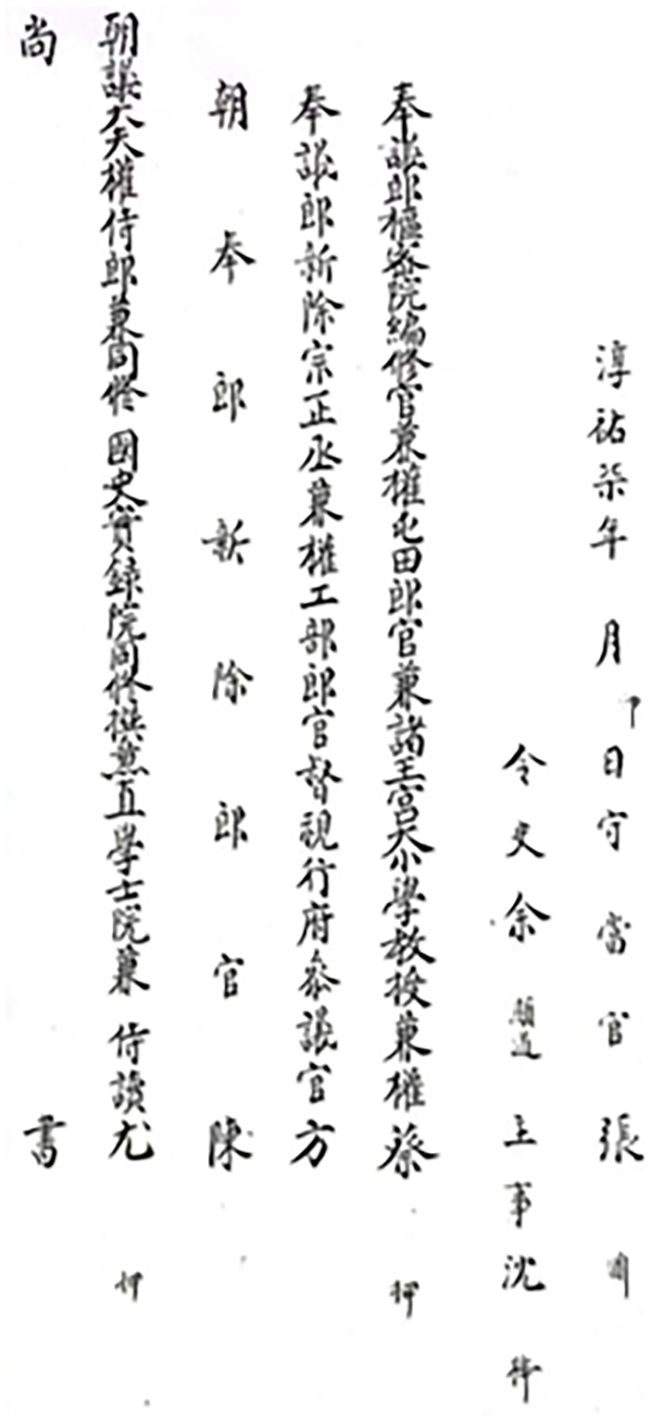 淳祐柒年 月 日守當官張
令史余 主事沈
奉議郎樞密院編修官兼權屯田郎官兼諸王宮大小學教授兼權蔡 押
奉議郎新除宗正丞兼權工部郎官督視行府參議官方
朝奉郎新除郎官陳
朝議大夫權侍郎兼同修 國史實録院同修撰兼直學士院兼 侍讀尤 押
尚書